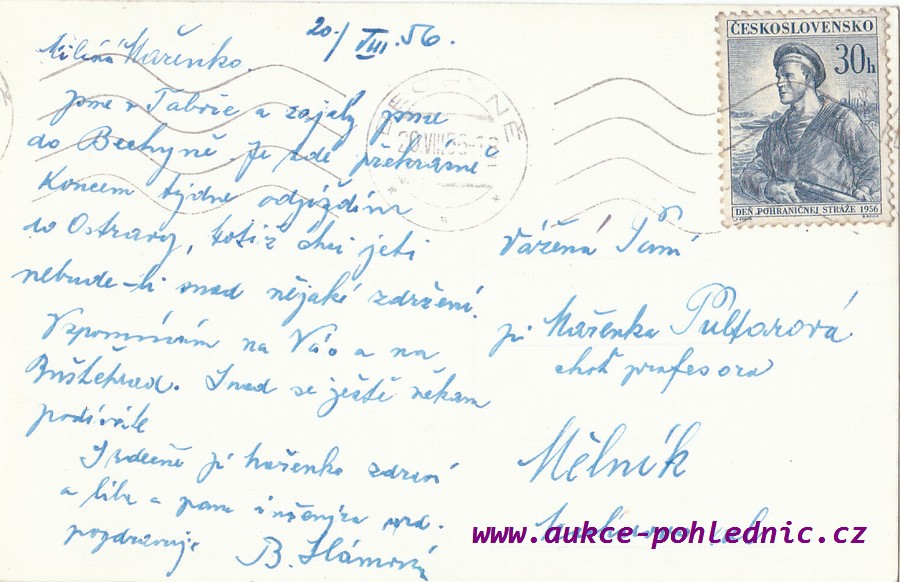 20./VIII.56.
Milená Mařenko.
jsme v Táboře a zajely jsme
do Bechyně. Je zde překrásně
Koncem týdne odjíždím
do Ostravy, totiž chci jeti
nebude-li snad nějaké zdržení.
Vzpomínám na Vás a na
Buštěhrad. Snad se ještě někam
podíváte
Srdečně pí Mařenko zdraví
a líbá a pana inženýra
pozdravuje B. Slámová
BECHYNĚ
20.VIII.56-18
ČESKOSLOVENSKO
30h
DEN POHRANIČNEJ STRÁŽE 1956
Vážená Paní
pí Mařenka Pultarová
choť profesora
Mělník
www.aukce-pohlednic.cz